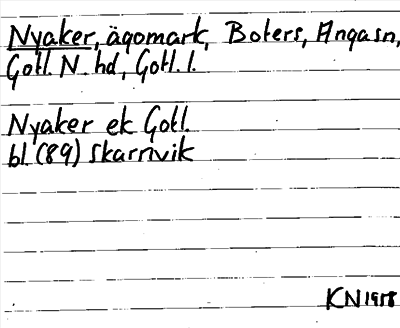 Nyaker, ägomark, Boters, Ängasn,
Gotl. N. hd, Gotl. l.
Nyaker ek Gotl.
bl. (89) Skarnvik
KN 1988